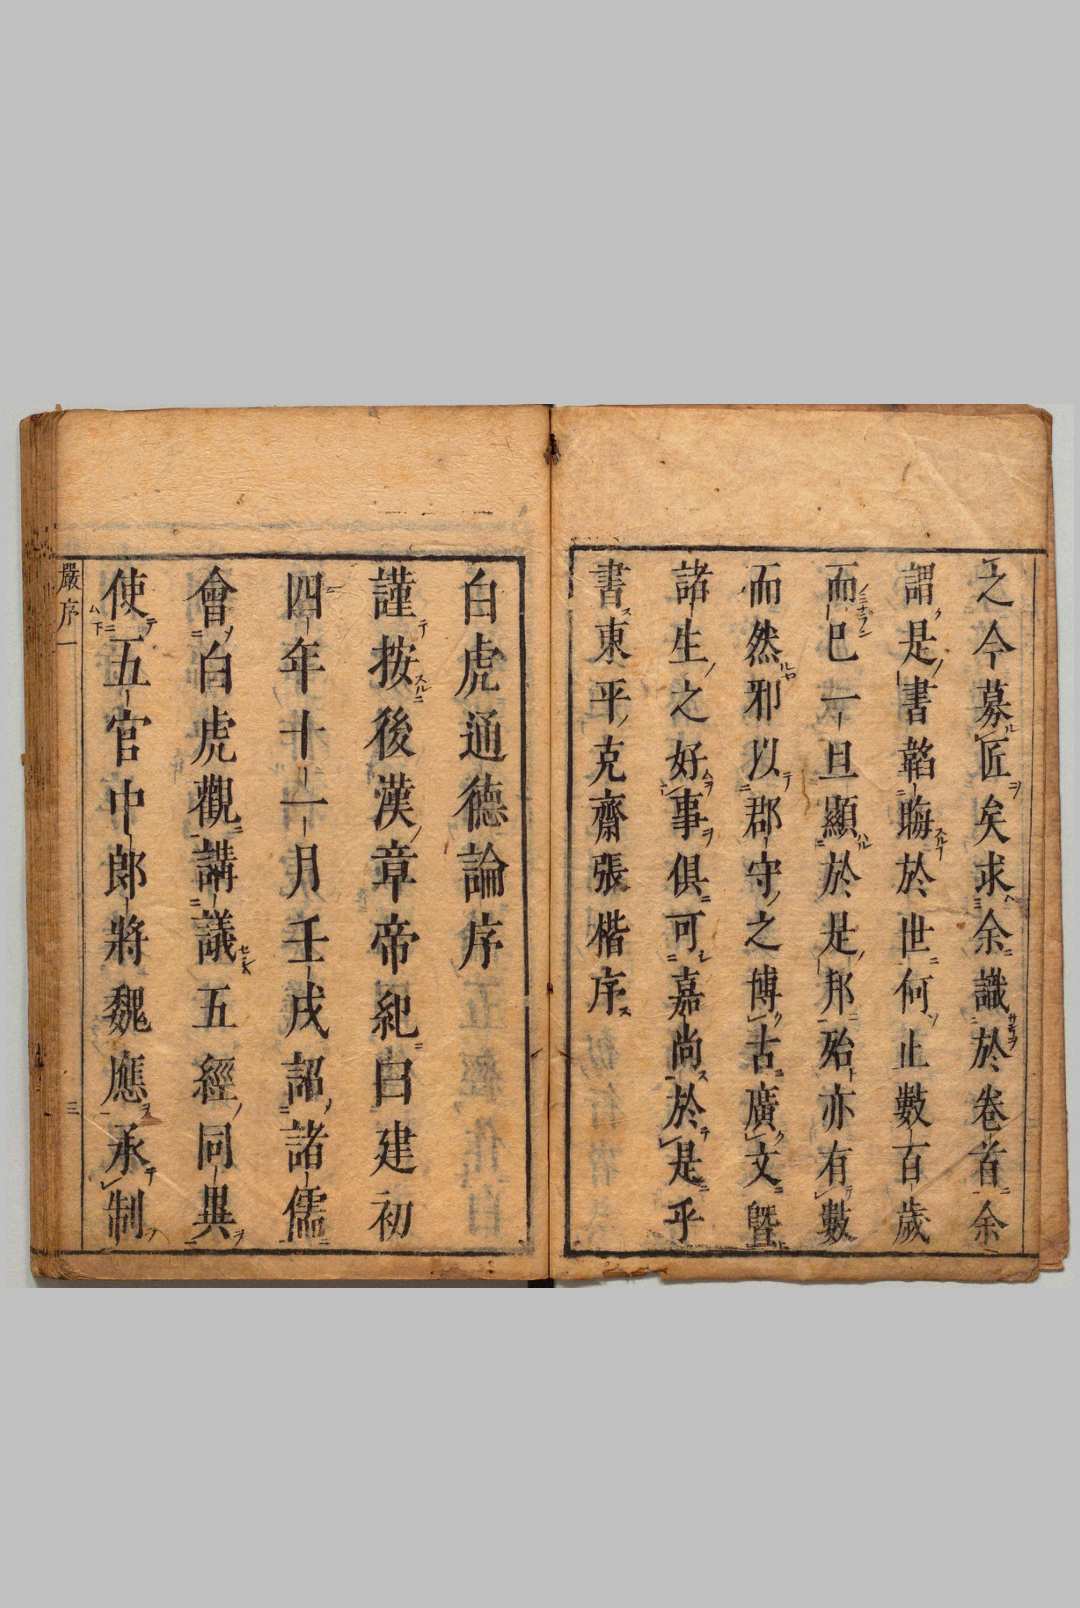 之今募匠矣求余識於卷首余
謂是書韜晦於世何止數百歲
而已一旦顯於是邦殆亦有數
而然邪以郡守之博古廣文曁
諸生之好事俱可嘉尚於是乎
書東平克齋張楷序
白虎通德論序
謹按後漢章帝紀自建初
四年十一月壬戌詔諸儒
會白虎觀講議五經同異
使五官中郎將魏應承制
嚴序一
三